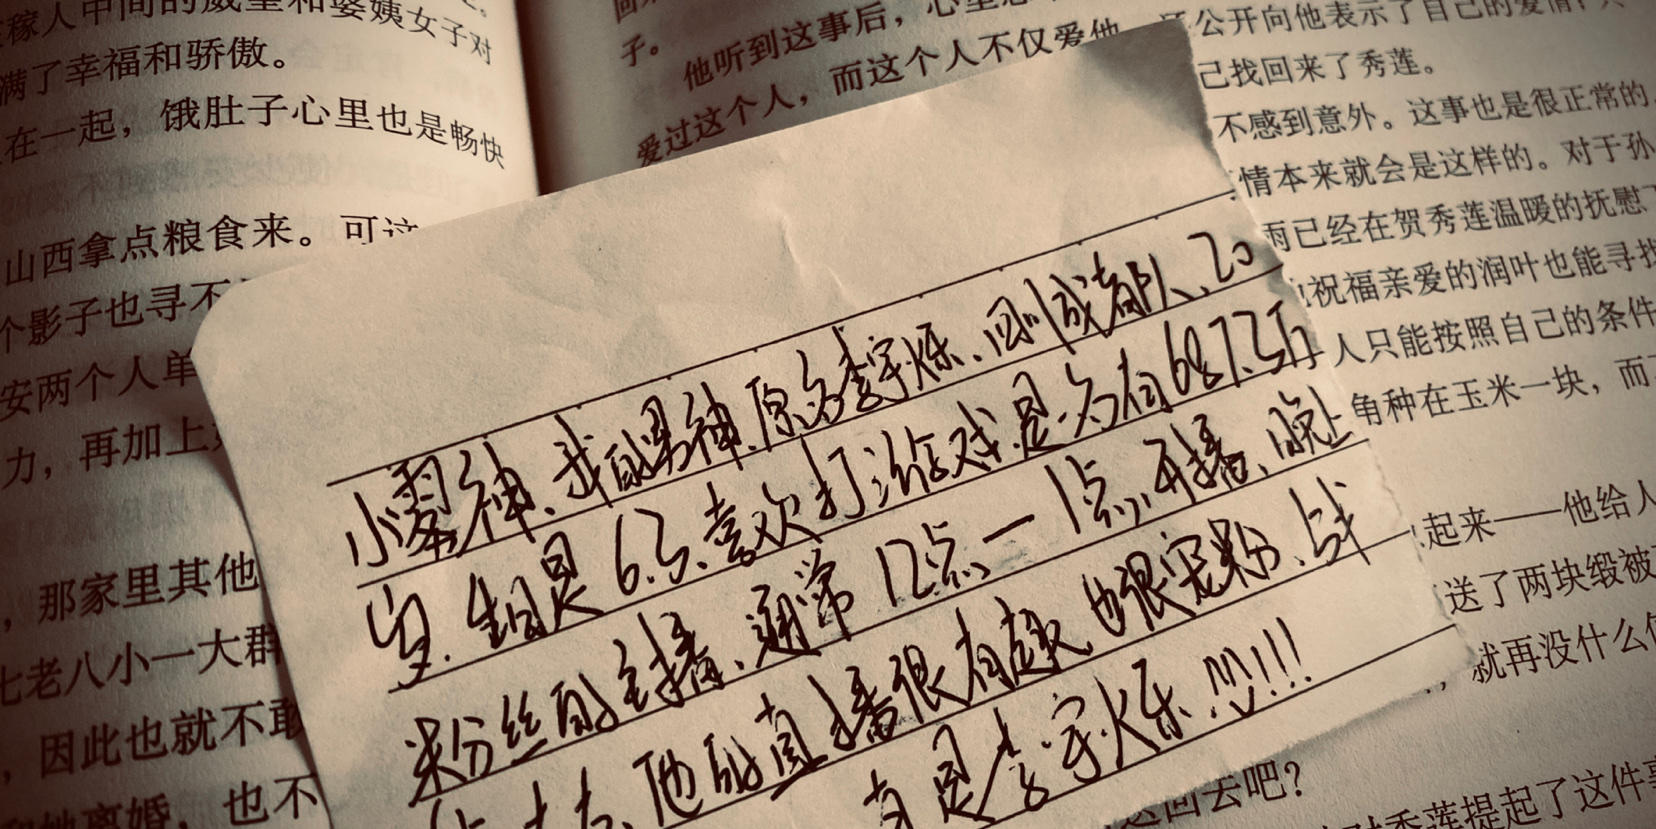 稼人中间的威望和婆姨女子对
满了幸福和骄傲。
在一起，饿肚子心里也是畅快
山西拿点粮食来。可这
个影子也寻不
安两个人单
力，再加上
，那家里其他
七老八小一大群
，因此也就不敢
离婚，也不
子。
他听到这事后，心里
爱过这个人，而这个人不仅爱他
公开向他表示了自己的爱情，
己找回来了秀莲。
不感到意外。这事也是很正常的，
情本来就会是这样的。对于孙
雨已经在贺秀莲温暖的抚慰
祝福亲爱的润叶也能寻找
人只能按照自己的条件
角种在玉米一块，而
起来——他给人
送了两块缎被
，就再没什么
这回去吧？
对秀莲提起了这件事
小雾神、我的男神、原名李宇烁、四川成都队、20
岁、生日是6.3、喜欢打游戏、是一名有687.3万
粉丝的主播、通常12点一1点开播、晚上
他的直播很有趣、也很宠粉、战
李宇烁!!!!!!